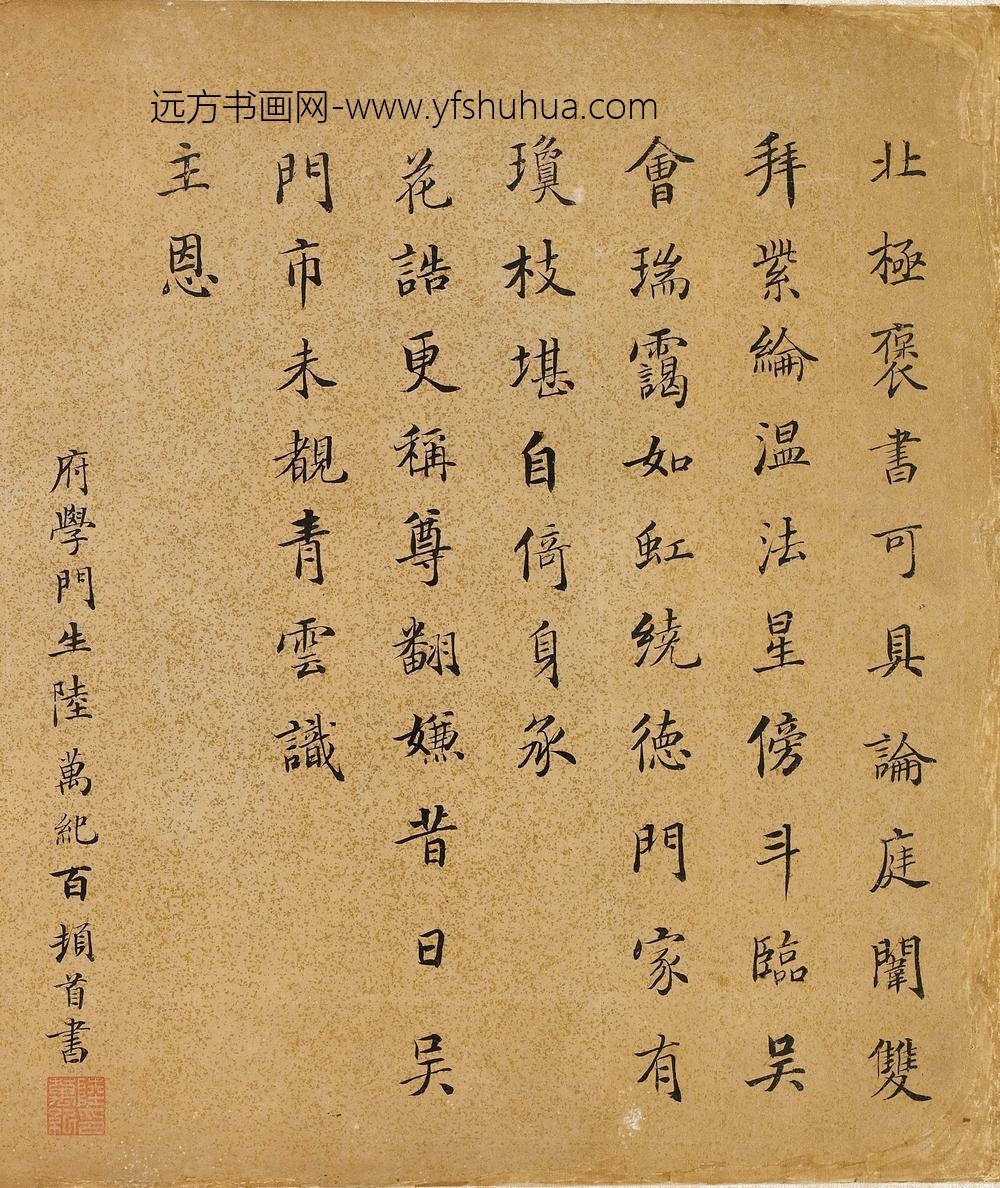 远方书画网-www.yfshuhua.com
北極褒書可具論庭闈雙
拜紫綸温法星傍斗臨吴
會瑞靄如虹繞德門家有
瓊枝堪自倚身承
花誥更稱尊翻嫌昔日吴
門市未覩青雲識
主恩
府學門生陸萬紀百頓首書